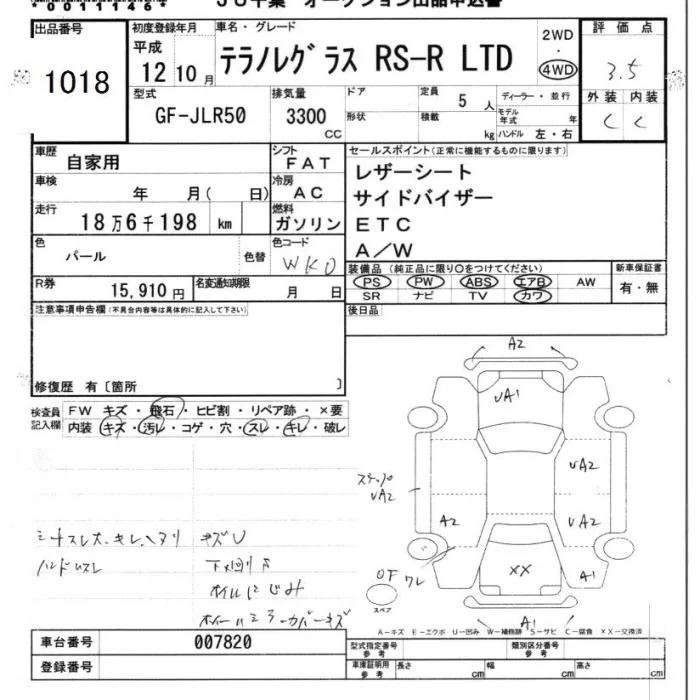 00111461 JU千葉 オークション出品申込書
出品番号 1018
初度登録年月 平成 12 10 月
車名・グレード テラノレグラス RS-R LTD
2WD・4WD
評価点 3.5
外装 内装
C C
型式 GF-JLR50
排気量 3300 CC
ドア 定員 5 人 ディーラー・並行
形状 積載 kg モデル年式 年
ハンドル 左・右
車歴 自家用
シフト FAT
車検 年 月( 日)
冷房 AC
走行 18万6千198 km
燃料 ガソリン
色 パール 色替
色コード WK0
R券 15,910 円
名変通知期限 月 日
セールスポイント(正常に機能するものに限ります)
レザーシート
サイドバイザー
ETC
A/W
装備品(純正品に限り○をつけてください) 新車保証書
PS PW ABS エアB AW 有・無
SR ナビ TV カワ
後日品
注意事項申告欄(不具合内容等は具体的に記入して下さい)
修復歴 有〔箇所 〕
検査員記入欄
FW キズ・飛石・ヒビ割・リペア跡・×要
内装 キズ・汚レ・コゲ・穴・スレ・キレ・破レ
A2
UA1
ステップ UA2
UA2
A2
UA2
シートスレ大、キレ、ヘタリ キズU
ハンドルスレ 下廻りサ
オイルにじみ
ホイールミラーカバーキズ
OF ワレ
スペア
XX
A1
A1
A-キズ E-エクボ U-凹み W-補修跡 S-サビ C-腐食 XX-交換済
車台番号 007820
登録番号
型式指定番号 参考 類別区分番号 参考
車庫証明用 参考 長さ cm 幅 cm 高さ cm